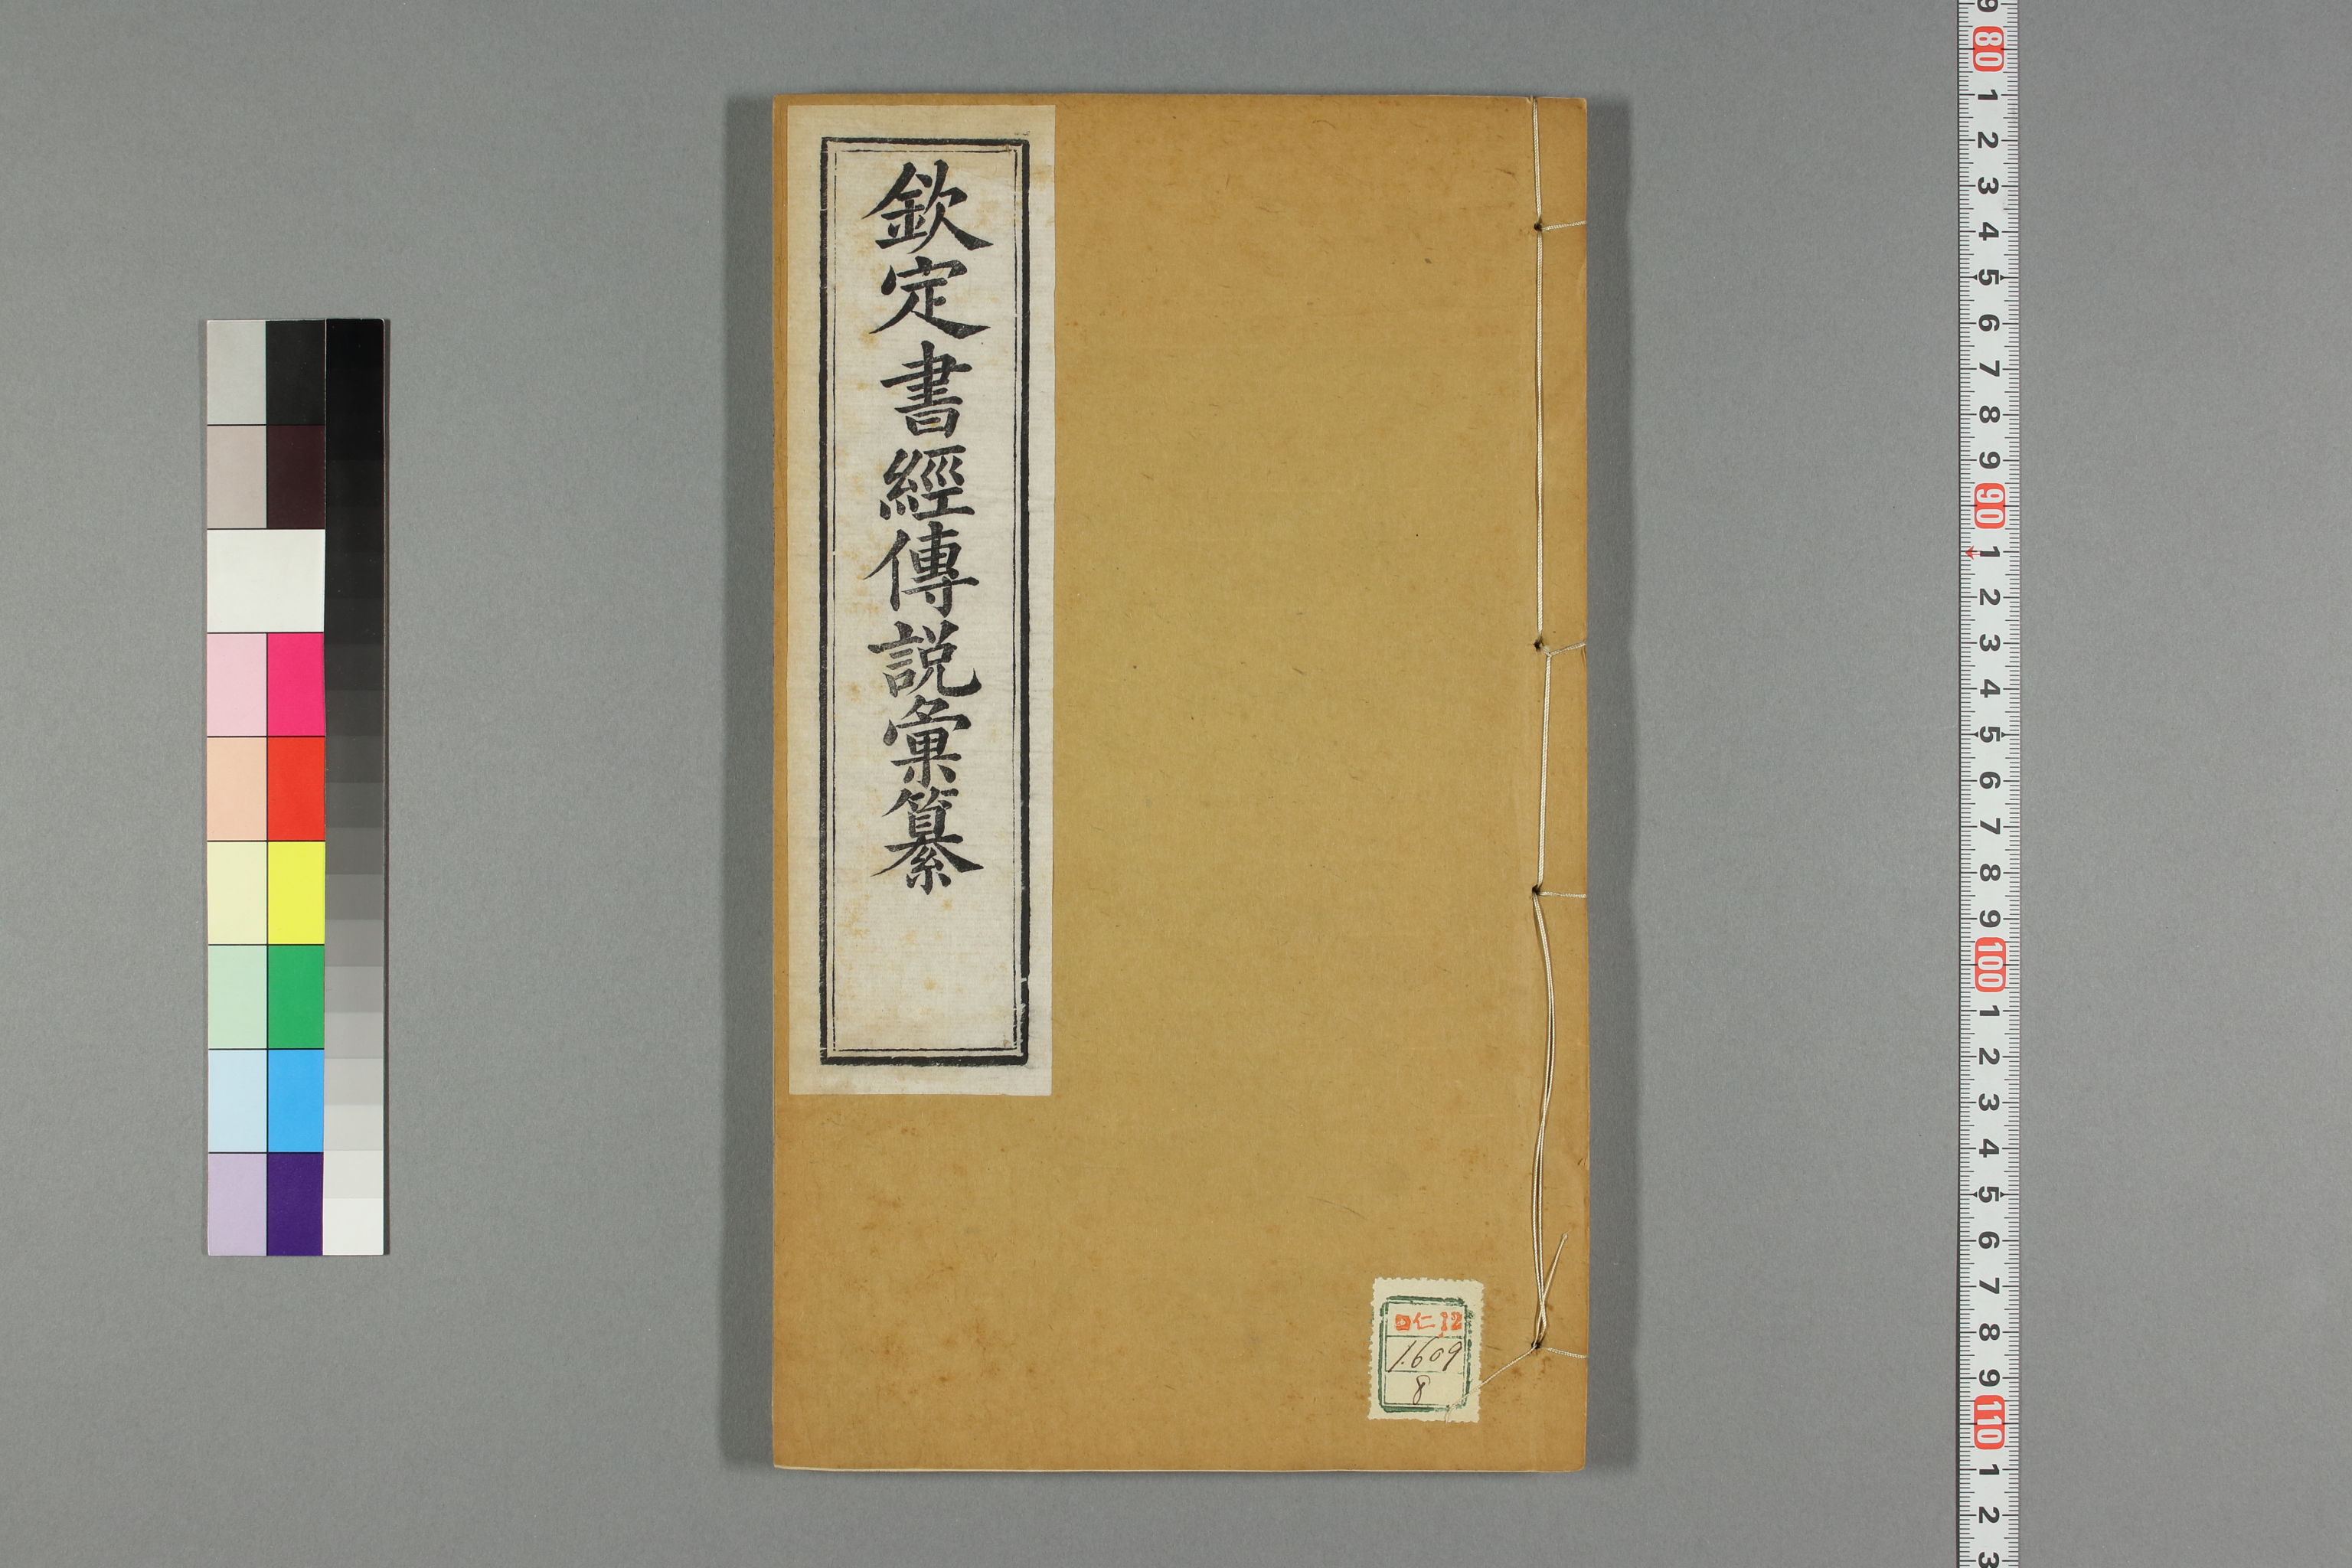 欽定書經傳説彙纂
口仁12
1609
8
9
80
1
2
3
4
5
6
7
8
9
90
1
2
3
4
5
6
7
8
9
100
1
2
3
4
5
6
7
8
9
110
1
2
3